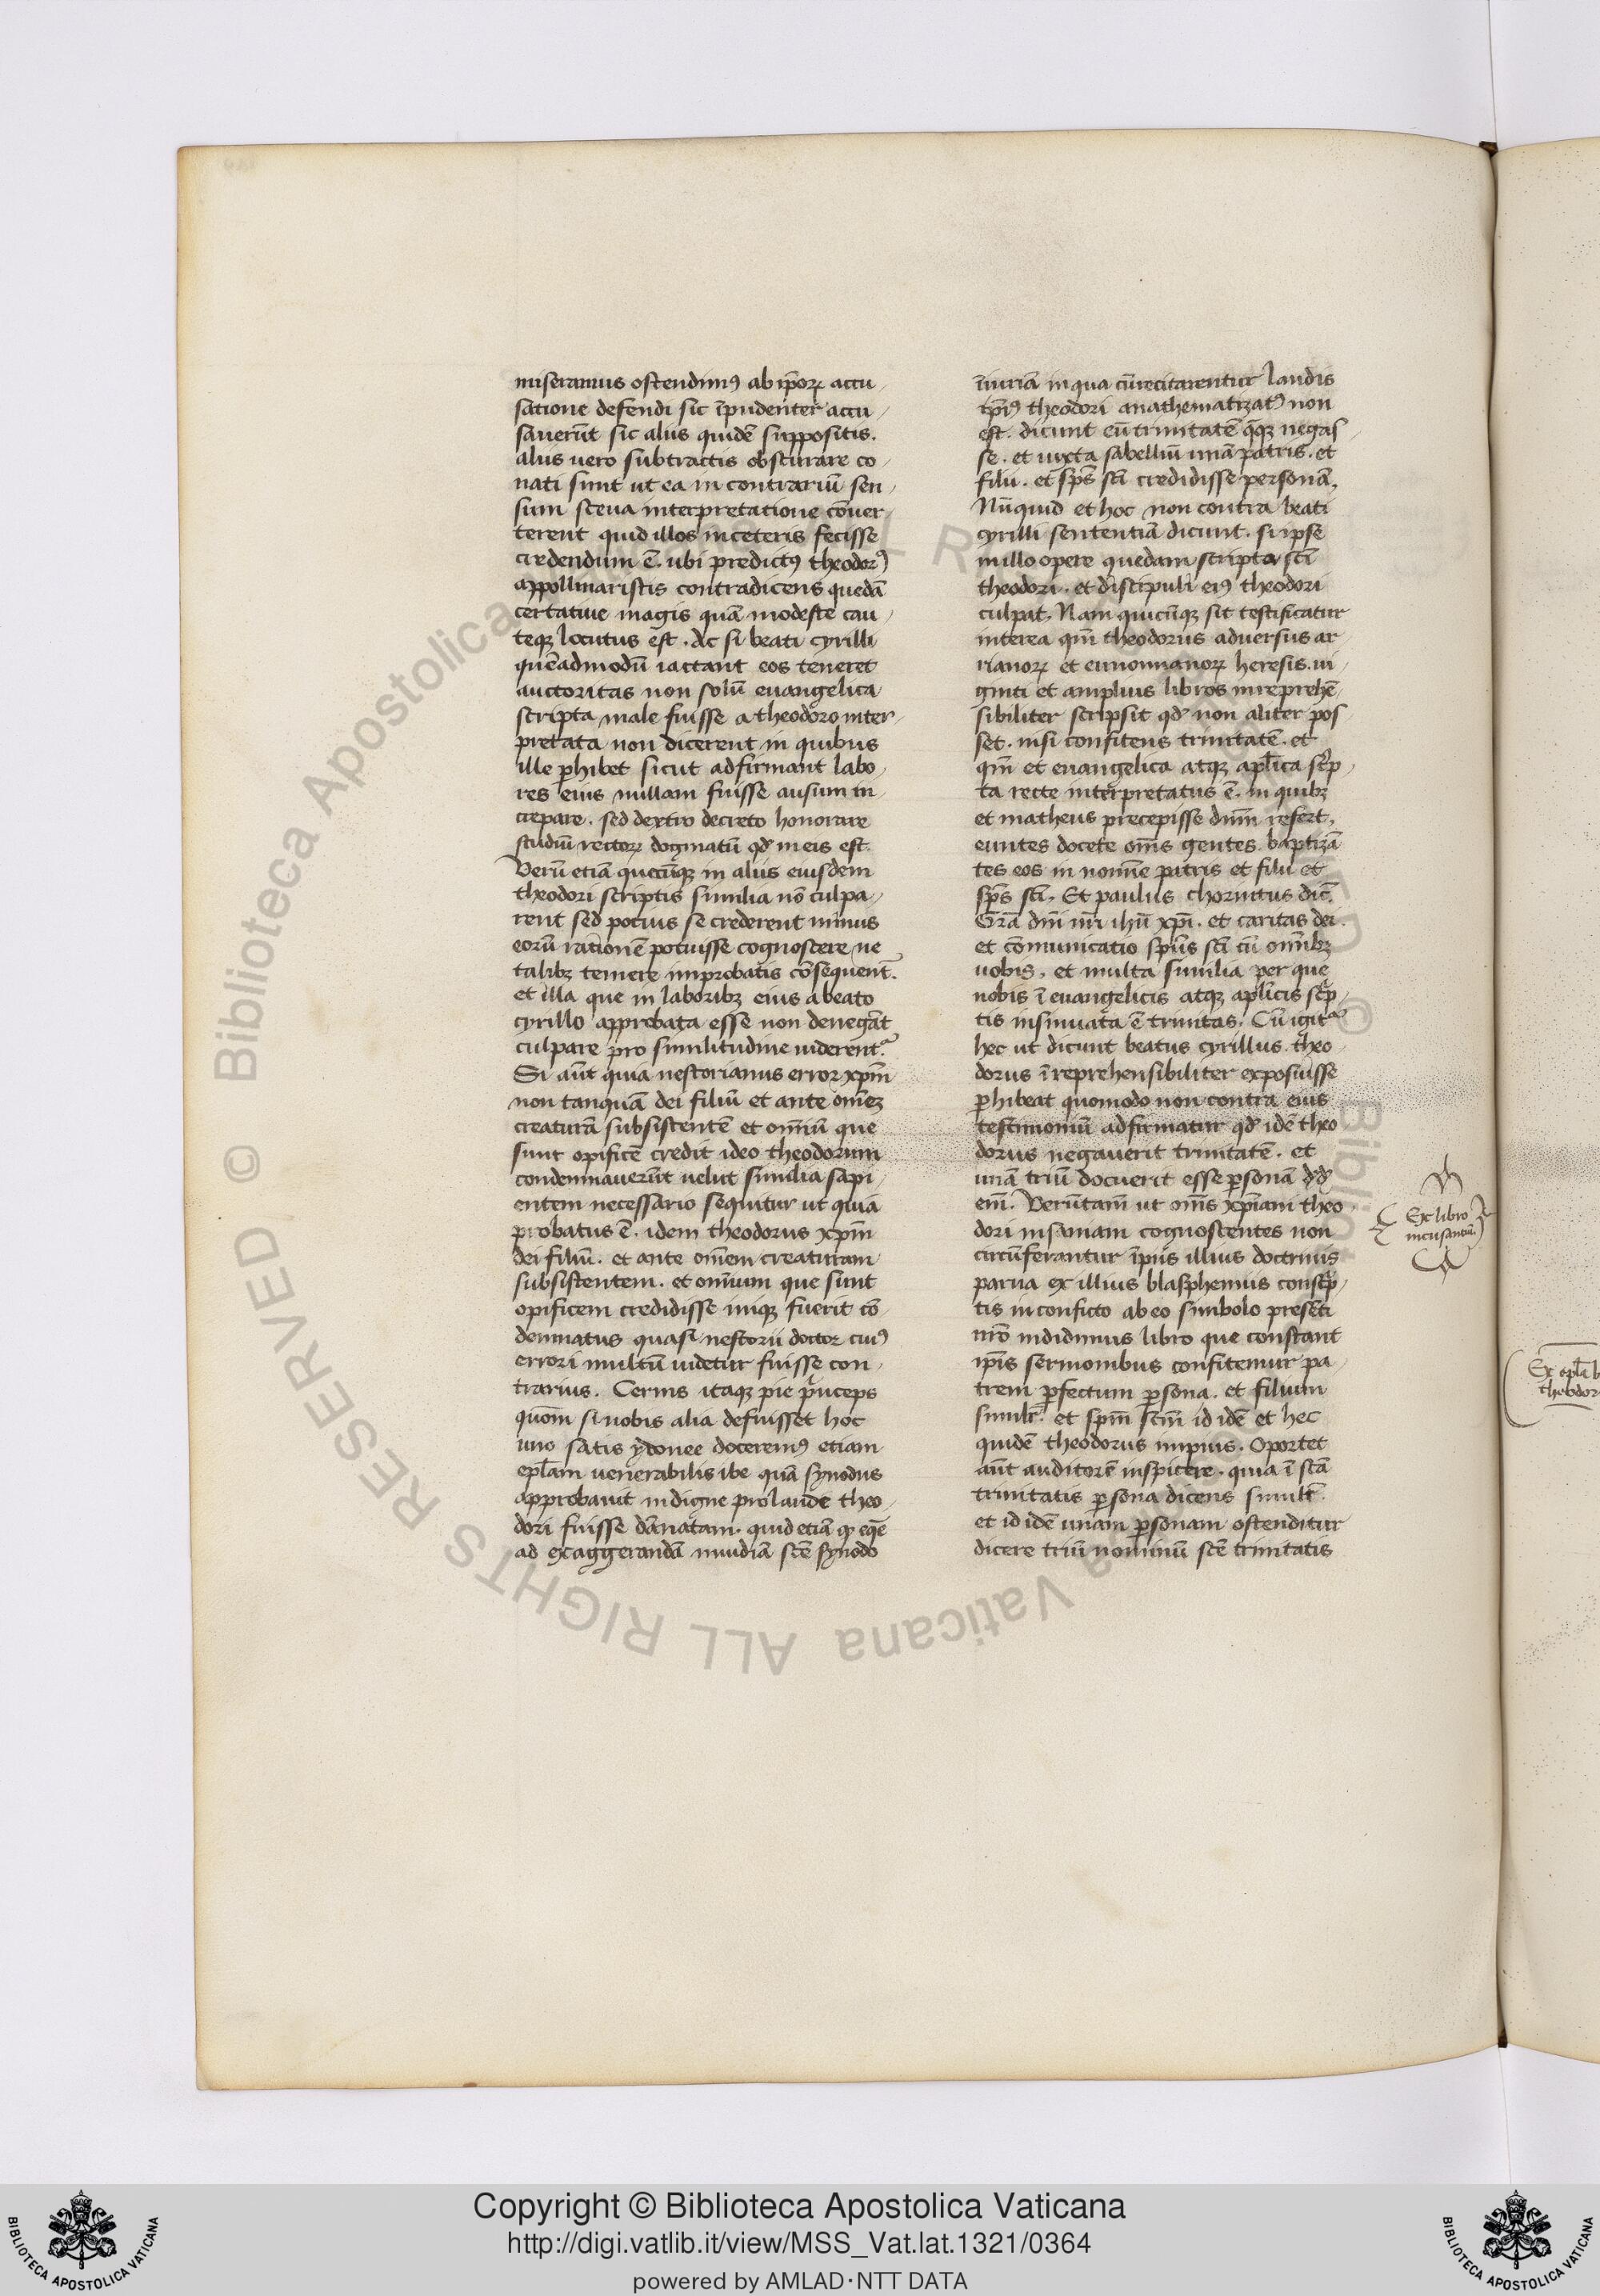 miseramus ostendimꝰ ab ip̄oꝝ accu
satione defendi sic īpudenter accu
sauerūt sic aliis quidē suppositis.
aliis uero subtractis obscurare co
nati sunt ut ea in contrariū sen
sum sceua interpretatione cōuer
terent quid illos in ceteris fecisse
credendum ē. ubi predictꝰ theodorꝰ
appollinaristis contradicens quedā
certatiue magis quā modeste cau
teqꝫ locutus est. Ac si beati cyrilli
quēadmodū iactant eos teneret
auctoritas non solū euangelica
scripta male fuisse a theodoro inter
pretata non dicerent in quibus
ille ꝑhibet sicut adfirmant labo
res eius nullam fuisse ausum in
crepare. sed dextro decreto honorare
studiū rectoꝝ dogmatū qd̓ in eis est.
Verū etiā quecūqꝫ in aliis eiusdem
theodori scriptis similia nō culpa
rent sed potius se crederent minus
eorū rationē potuisse cognoscere ne
talibꝫ temere improbatis cōsequent᷑.
et illa que in laboribꝫ eius a beato
cyrillo approbata esse non denegāt
culpare pro similitudine uiderent᷑.
Si aūt quia nestorianus error xp̄m
non tanquā dei filiū et ante om̄eꝫ
creaturā subsistentē et om̄iū que
sunt opificē credit ideo theodorum
condemnauerūt uelut similia sapi
entem necessario sequitur ut quia
probatus ē. idem theodorus xp̄m
dei filiū. et ante om̄em creaturam
subsistentem. et om̄ium que sunt
opificem credidisse iniqꝫ fuerit cō
demnatus quasi nestorii doctor cuiꝰ
errori multū uidetur fuisse con
trarius. Cernis itaqꝫ pie pͥnceps
quom̄ si nobis alia defuisset hoc
uno satis ydonee doceremꝰ etiam
epl̄am uenerabilis ibe quā synodus
approbauit indigne pro laude theo
dori fuisse dānatam. quid etiā qꝫ eqȩ
ad exaggerandā inuidiā scē synodo
īiuriā in qua cū recitarentur laudis
ip̄iꝰ theodori anathematizatꝰ non
est. dicunt eū trinitatē qͦqꝫ negas
se. et iuxta sabelliū unā patris. et
filii. et sp̄s scī credidisse personā.
Nūquid et hoc non contra beati
cyrilli sententiā dicunt. si ipse
in illo opere quedam scripta scī
theodori. et discipuli eiꝰ theodori
culpat. Nam quicūqꝫ sit testificatur
interea qm̄ theodorus aduersus ar
rianoꝝ et eunomianoꝝ heresis. ui
ginti et amplius libros inreprehē
sibiliter scripsit qd̓ non aliter pos
set. nisi confitens trinitatē. et
qm̄ et euangelica atqꝫ apl̄ica scͥp
ta recte interpretatus ē. in quibꝫ
et matheus precepisse dn̄m refert.
euntes docete om̄s gentes. baptizā
tes eos in nomīe patris et filii et
sp̄s scī. Et paulus chorintus dic̄.
Gr̄a dn̄i nr̄i ihū xp̄i. et caritas dei
et cōmunicatio sp̄us scī cū om̄ibꝫ
uobis. et multa similia per que
nobis ī euangelicis atqꝫ apl̄icis scͥp
tis insinuata ē trinitas. Cū igit᷑
hec ut dicunt beatus cyrillus. theo
dorus īreprehensibiliter exposuisse
ꝑhibeat quomodo non contra eius
testimoniū adfirmatur qd̓ idē theo
dorus negauerit trinitatē. et
unā triū docuerit esse ꝑsonā
em̄. Verūtam̄ ut om̄s xp̄iani theo
dori insaniam cognoscentes non
circūferantur īpiis illius doctrinis
parua ex illius blasphemiis conscͥp
tis in conficto ab eo simbolo presēti
nr̄o indidimus libro que constant
ip̄is sermonibus confitemur pa
trem ꝑfectum ꝑsona. et filium
simil̄r. et sp̄m scm̄ id idē et hec
quidē theodorus impius. Oportet
aūt auditorē inspicere. quia ī scā
trinitatis ꝑsona dicens simil̄r.
et id idē unam ꝑsonam ostenditur
dicere triū nominū scē trinitatis
Ex libro
incusantiū
Ex epl̄a b
theodor
Copyright © Biblioteca Apostolica Vaticana
http://digi.vatlib.it/view/MSS_Vat.lat.1321/0364
powered by AMLAD·NTT DATA